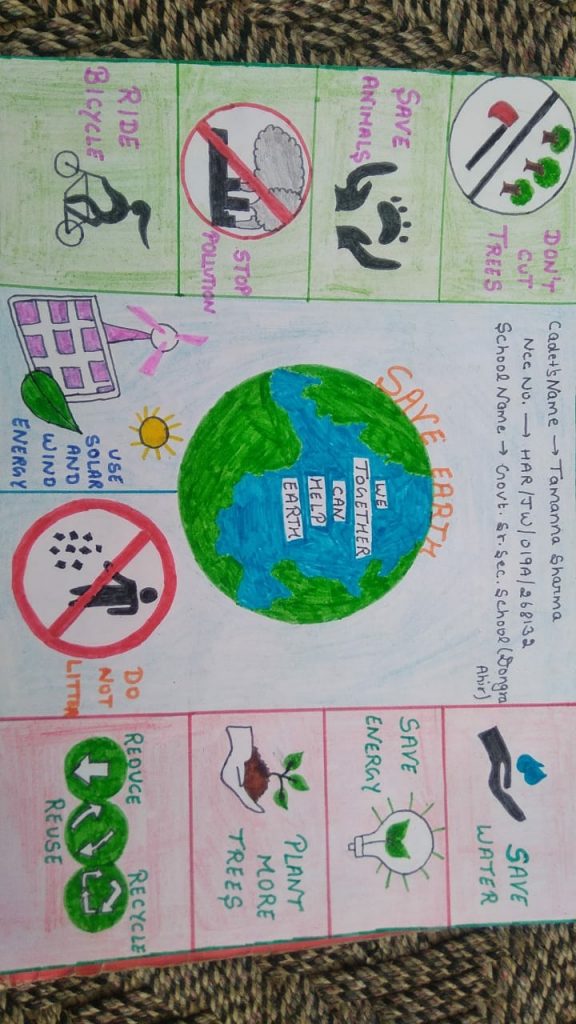 Cadet's Name → Tamanna Sharma
Ncc No. → HAR/JW/019A/268132
School Name → Govt. Sr. Sec. School (Dongra
Ahir)
DON'T
CUT
TREES
SAVE
ANIMALS
STOP
POLLUTION
RIDE
BICYCLE
SAVE EARTH
WE
TOGETHER
CAN
HELP
EARTH
USE
SOLAR
AND
WIND
ENERGY
DO
NOT
LITTER
SAVE
WATER
SAVE
ENERGY
PLANT
MORE
TREES
REDUCE
RECYCLE
REUSE